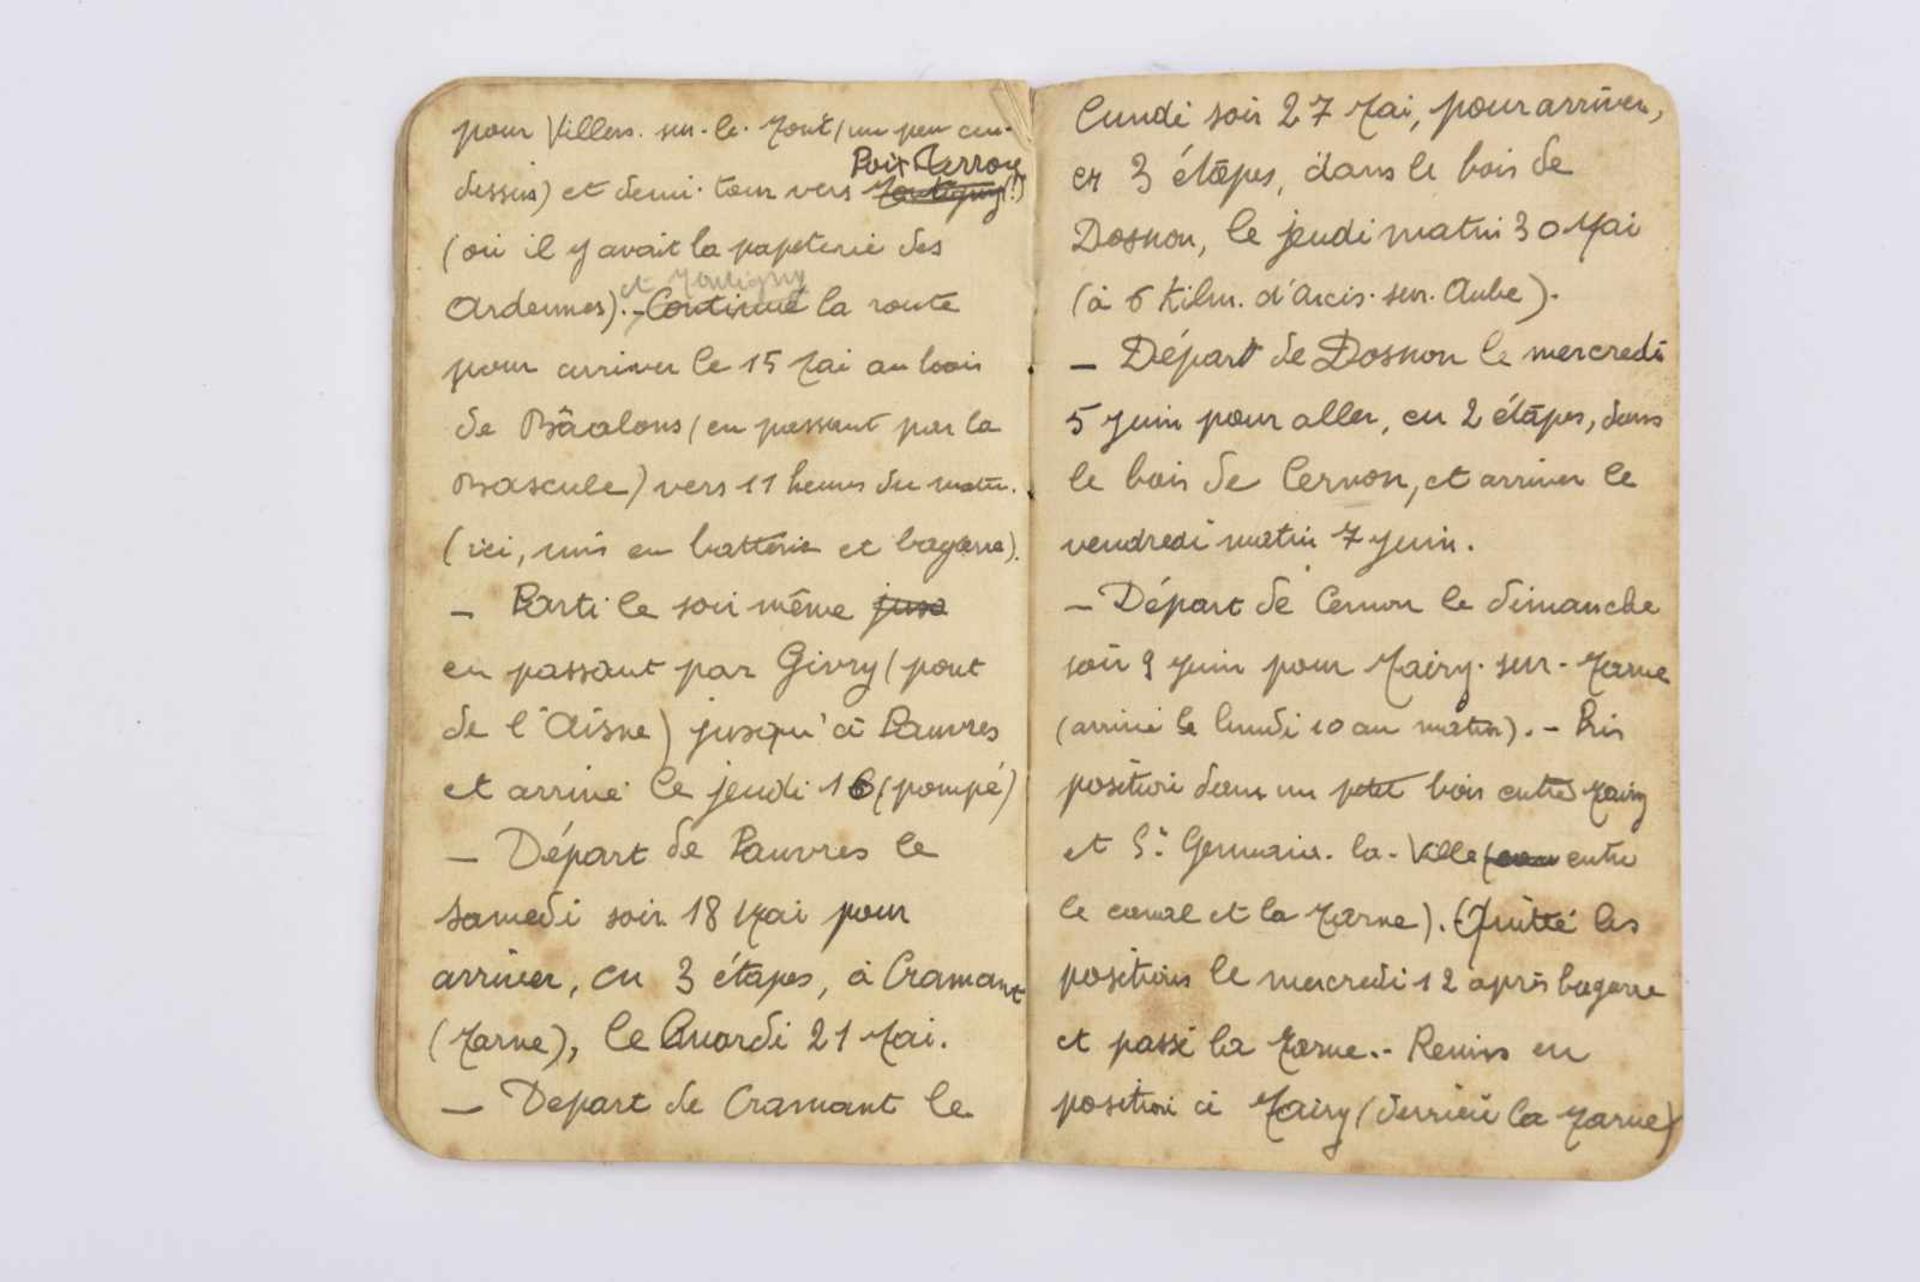 pour Villers-sur-le-Mont (un peu au-
Poix Terron
dessus) et demi-tour vers Montigny (!)
(où il y avait la papeterie des
et Montigny
Ardennes). - Continué la route
pour arriver le 15 Mai au bois
de Bâalons (en passant par la
Bascule) vers 11 heures du matin.
(ici, mis en batterie et bagarre).
— Parti le soir même jusq
en passant par Givry (pont
de l'Aisne) jusqu'à Pauvres
et arrivé le jeudi 16 (pompé)
— Départ de Pauvres le
Samedi soir 18 Mai pour
arriver, en 3 étapes, à Cramant
(Marne), le Mardi 21 Mai.
— Depart de Cramant le
Lundi soir 27 Mai, pour arriver,
en 3 étapes, dans le bois de
Dosnon, le jeudi matin 30 Mai
(à 6 Kilm. d'Arcis-sur-Aube).
— Départ de Dosnon le mercredi
5 Juin pour aller, en 2 étapes, dans
le bois de Cernon, et arriver le
vendredi matin 7 Juin.
— Départ de Cernon le dimanche
soir 9 Juin pour Mairy-sur-Marne
(arrivé le lundi 10 au matin). - Pris
position dans un petit bois entre Mairy
et St Germain-la-Ville ( entre
le canal et la Marne). (Quitté les
positions le mercredi 12 après bagarre
et passé la Marne. - Remis en
position à Mairy (derrière la Marne)